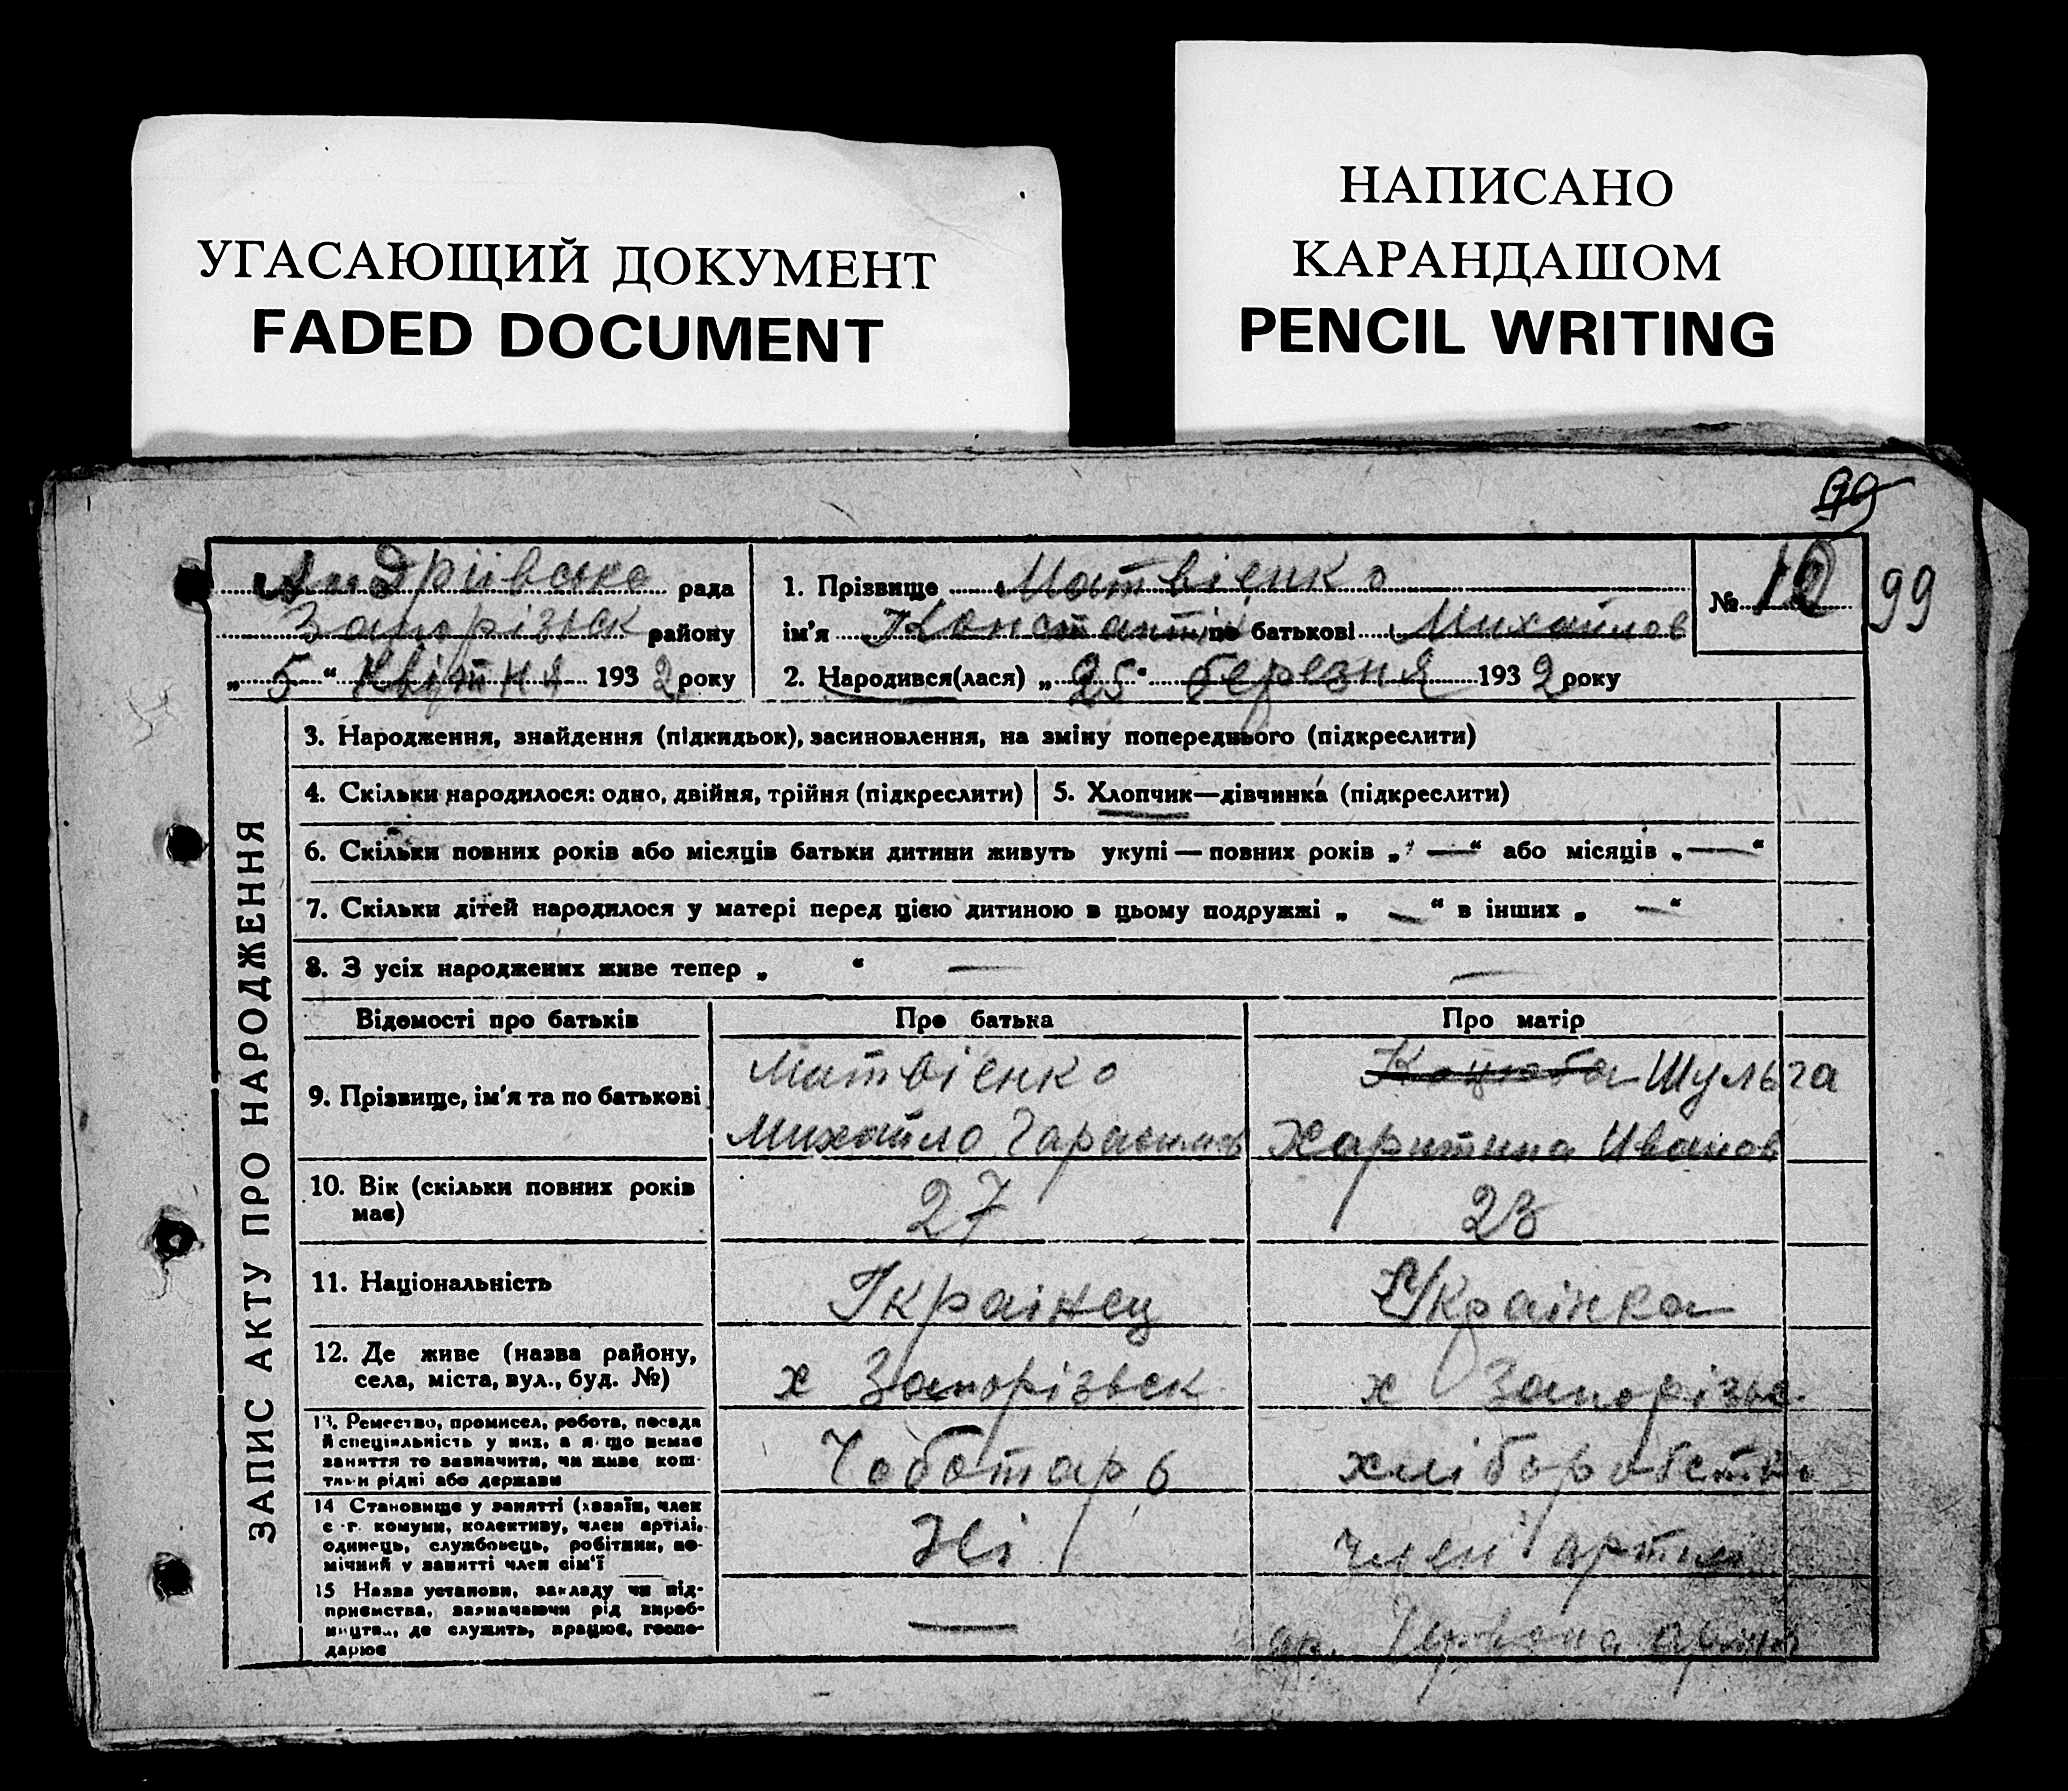 УГАСАЮЩИЙ ДОКУМЕНТ
FADED DOCUMENT
НАПИСАНО
КАРАНДАШОМ
PENCIL WRITING
99
Андріївська рада
Запорізьк району
„ 5 “ Квітня 1932 року
1. Прізвище Матвієнко
ім'я Константін по батькові Михайлов
2. Народився(лася) „ 25 “ березня 1932 року
№ 10
99
ЗАПИС АКТУ ПРО НАРОДЖЕННЯ
3. Народження, знайдення (підкидьок), засиновлення, на зміну попереднього (підкреслити)
4. Скільки народилося: одно, двійня, трійня (підкреслити)
5. Хлопчик—дівчинка (підкреслити)
6. Скільки повних років або місяців батьки дитини живуть укупі — повних років „ — “ або місяців „ — “
7. Скільки дітей народилося у матері перед цією дитиною в цьому подружжі „ — “ в інших „ — “
8. З усіх народжених живе тепер „ “ — —
Відомості про батьків
Про батька
Про матір
9. Прізвище, ім'я та по батькові
Матвієнко
Михайло Гарасимов
Коцюба Шульга
Харитина Иванов
10. Вік (скільки повних років має)
27
23
11. Національність
Українец
Українка
12. Де живе (назва району,
села, міста, вул., буд. №)
х Запорізьск
х Запорізьк
13. Ремество, промисел, робота, посада
й спеціяльність у них, а якщо немає
заняття то зазначити, чи живе кош-
тами рідні або держави
Чоботарь
хліборобство
14 Становище у занятті (хазяїн, член
с.-г. комуни, колективу, член артілі,
одинець, службовець, робітник, по-
мічний у занятті член сім'ї
Ні
член артілі
15 Назва установи, закладу чи під-
приємства, зазначаючи рід вироб-
ництва, де служить, працює, госпо-
дарює
—
ар. Червона армія